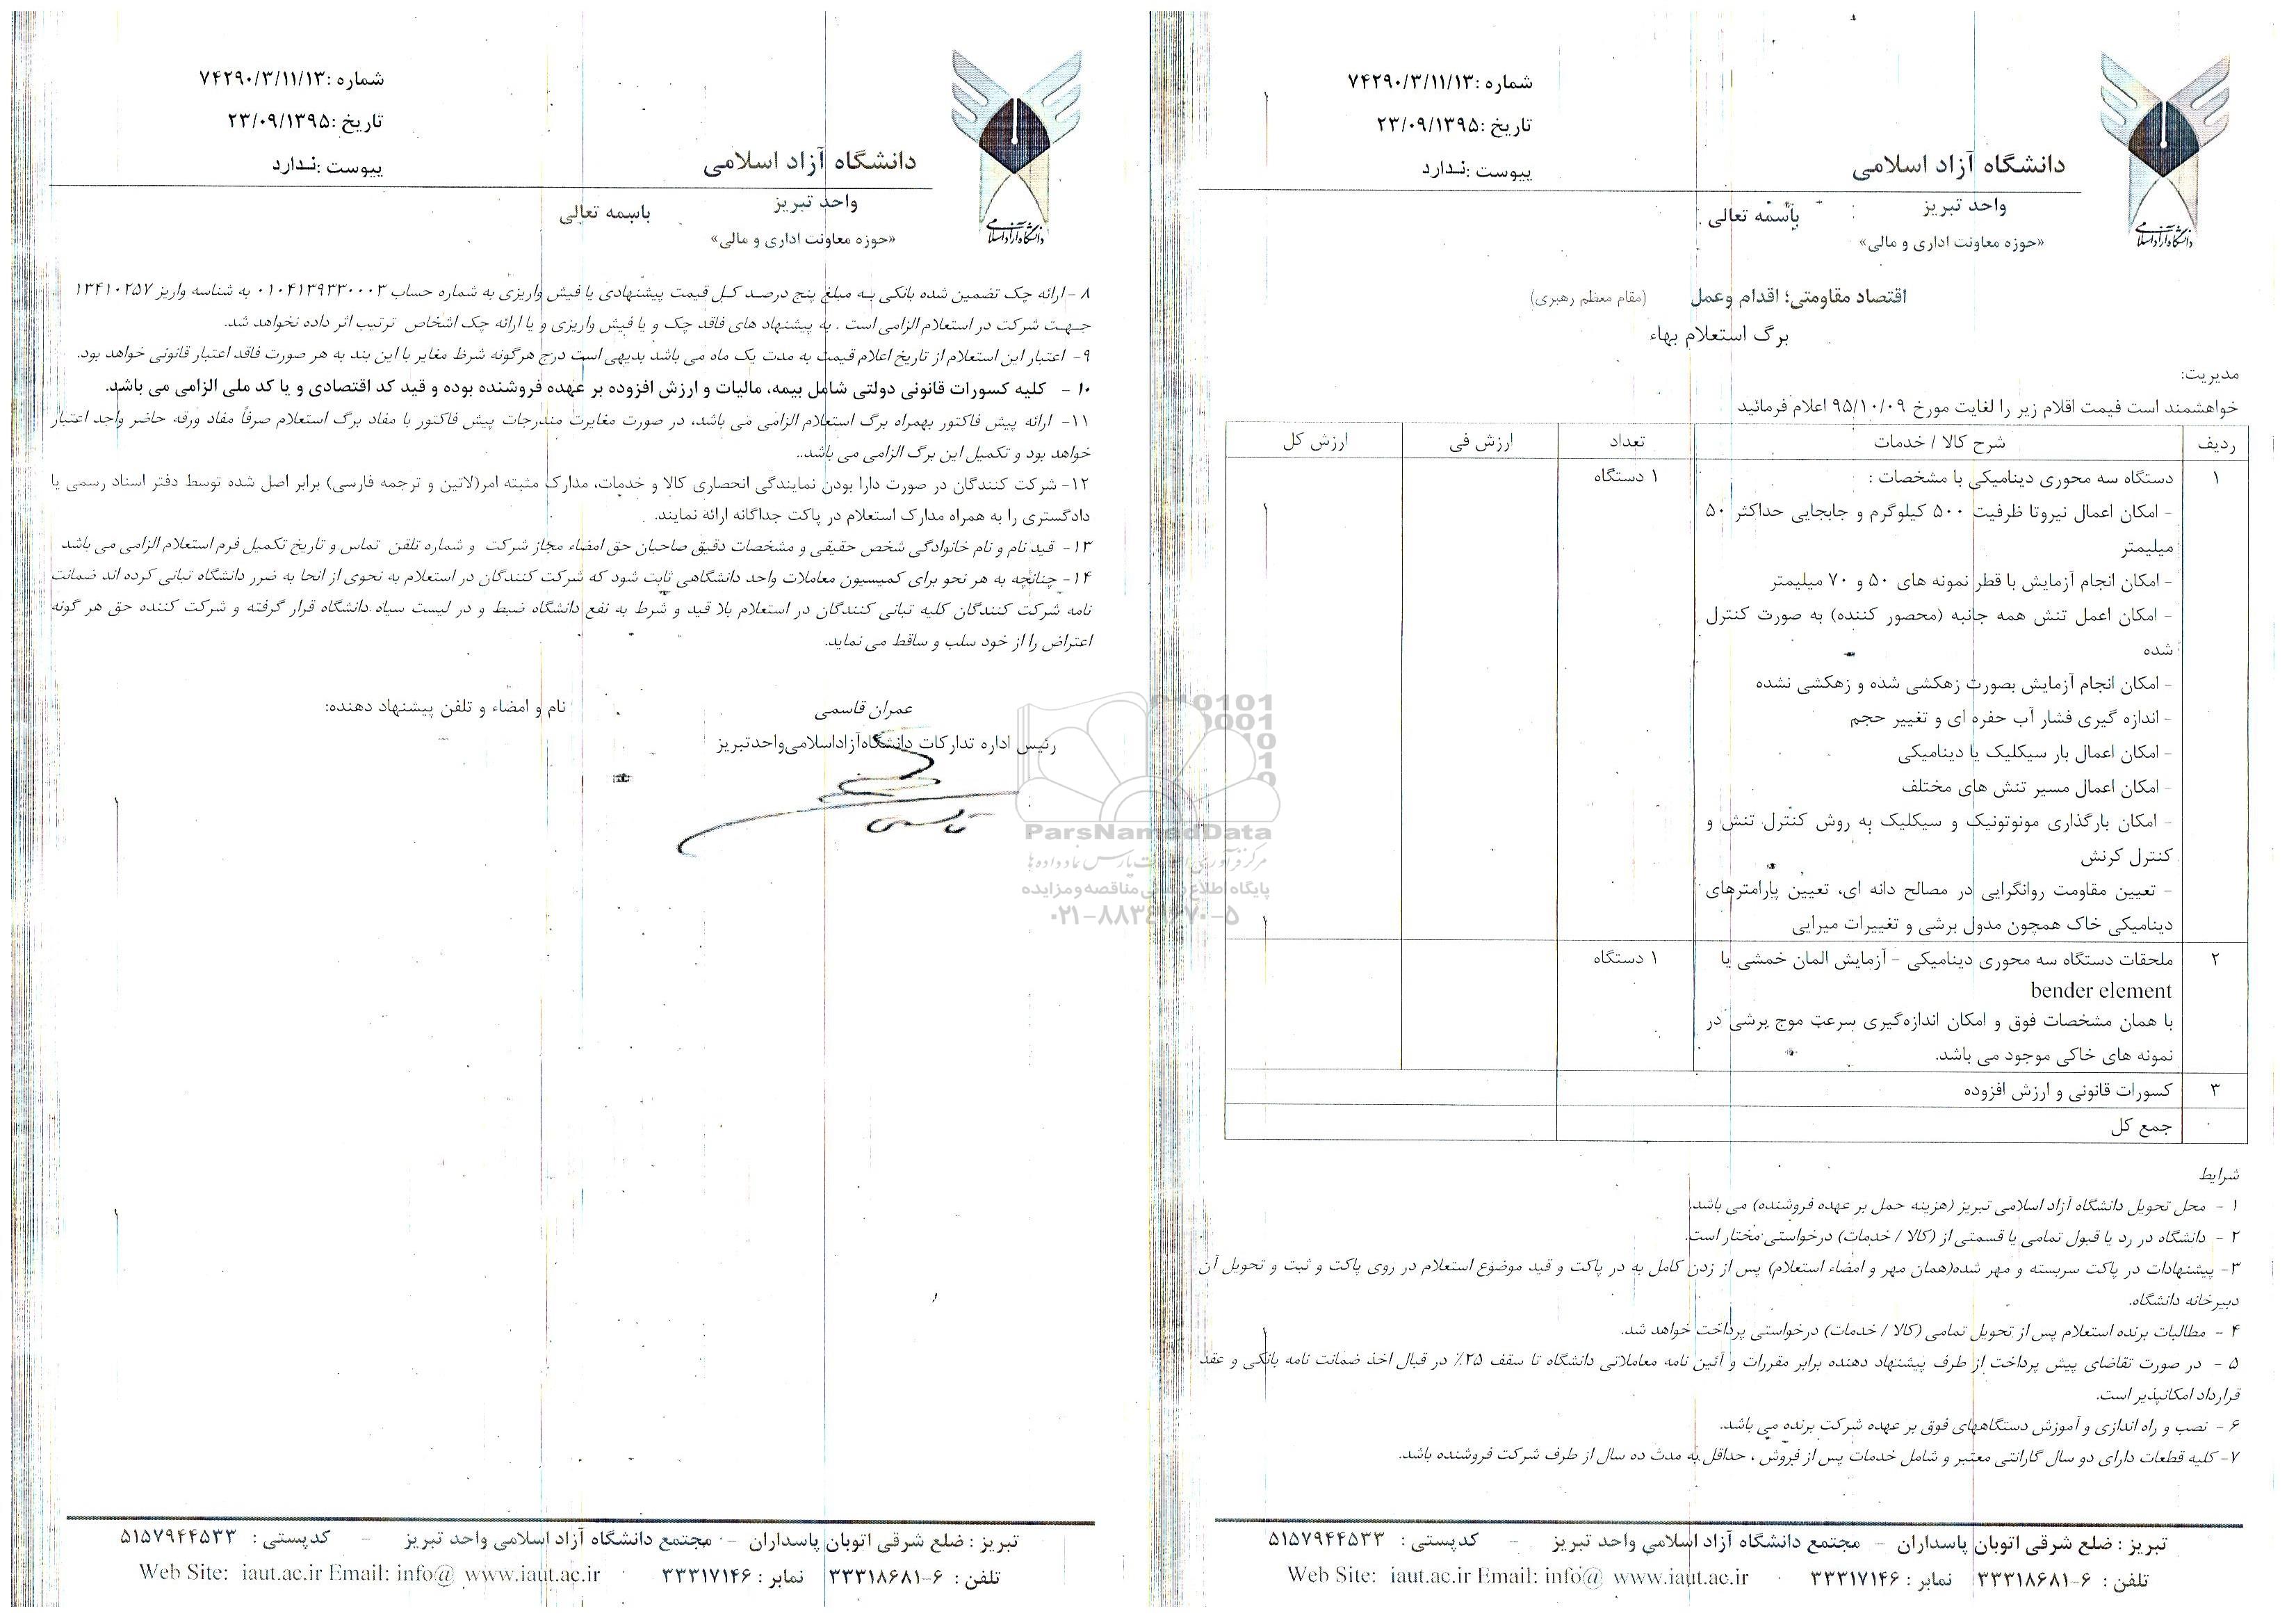 شماره :۷۴۲۹۰/۳/۱۱/۱۳
تاریخ :۲۳/۰۹/۱۳۹۵
پیوست :ندارد
دانشگاه آزاد اسلامی
واحد تبریز
«حوزه معاونت اداری و مالی»
باسمه تعالی
دانشگاه آزاد اسلامی
اقتصاد مقاومتی؛ اقدام وعمل (مقام معظم رهبری)
برگ استعلام بهاء
مدیریت:
خواهشمند است قیمت اقلام زیر را لغایت مورخ ۹۵/۱۰/۰۹ اعلام فرمائید
ردیف شرح کالا / خدمات تعداد ارزش فی ارزش کل
۱ دستگاه سه محوری دینامیکی با مشخصات : ۱ دستگاه
- امکان اعمال نیروتا ظرفیت ۵۰۰ کیلوگرم و جابجایی حداکثر ۵۰
میلیمتر
- امکان انجام آزمایش با قطر نمونه های ۵۰ و ۷۰ میلیمتر
- امکان اعمل تنش همه جانبه (محصور کننده) به صورت کنترل
شده
- امکان انجام آزمایش بصورت زهکشی شده و زهکشی نشده
- اندازه گیری فشار آب حفره ای و تغییر حجم
- امکان اعمال بار سیکلیک یا دینامیکی
- امکان اعمال مسیر تنش های مختلف
- امکان بارگذاری مونوتونیک و سیکلیک به روش کنترل تنش و
کنترل کرنش
- تعیین مقاومت روانگرایی در مصالح دانه ای، تعیین پارامترهای
دینامیکی خاک همچون مدول برشی و تغییرات میرایی
۲ ملحقات دستگاه سه محوری دینامیکی - آزمایش المان خمشی یا ۱ دستگاه
bender element
با همان مشخصات فوق و امکان اندازه‌گیری سرعت موج برشی در
نمونه های خاکی موجود می باشد.
۳ کسورات قانونی و ارزش افزوده
جمع کل
شرایط
۱ - محل تحویل دانشگاه آزاد اسلامی تبریز (هزینه حمل بر عهده فروشنده) می باشد.
۲ - دانشگاه در رد یا قبول تمامی یا قسمتی از (کالا / خدمات) درخواستی مختار است.
۳- پیشنهادات در پاکت سربسته و مهر شده(همان مهر و امضاء استعلام) پس از زدن کامل به در پاکت و قید موضوع استعلام در روی پاکت و ثبت و تحویل آن
دبیرخانه دانشگاه.
۴ - مطالبات برنده استعلام پس از تحویل تمامی (کالا / خدمات) درخواستی پرداخت خواهد شد.
۵ - در صورت تقاضای پیش پرداخت از طرف پیشنهاد دهنده برابر مقررات و آئین نامه معاملاتی دانشگاه تا سقف ۲۵٪ در قبال اخذ ضمانت نامه بانکی و عقد
قرارداد امکانپذیر است.
۶ - نصب و راه اندازی و آموزش دستگاههای فوق بر عهده شرکت برنده می باشد.
۷- کلیه قطعات دارای دو سال گارانتی معتبر و شامل خدمات پس از فروش ، حداقل به مدت ده سال از طرف شرکت فروشنده باشد.
تبریز : ضلع شرقی اتوبان پاسداران - مجتمع دانشگاه آزاد اسلامی واحد تبریز - کدپستی : ۵۱۵۷۹۴۴۵۳۳
تلفن : ۶-۳۳۳۱۸۶۸۱ نمابر : ۳۳۳۱۷۱۴۶ Web Site: iaut.ac.ir Email: info@ www.iaut.ac.ir
شماره :۷۴۲۹۰/۳/۱۱/۱۳
تاریخ :۲۳/۰۹/۱۳۹۵
پیوست :ندارد
دانشگاه آزاد اسلامی
واحد تبریز
«حوزه معاونت اداری و مالی»
باسمه تعالی
دانشگاه آزاد اسلامی
۸ - ارائه چک تضمین شده بانکی به مبلغ پنج درصد کل قیمت پیشنهادی یا فیش واریزی به شماره حساب ۰۱۰۴۱۳۹۳۳۰۰۰۳ به شناسه واریز ۱۳۴۱۰۲۵۷
جهت شرکت در استعلام الزامی است . به پیشنهاد های فاقد چک و یا فیش واریزی و یا ارائه چک اشخاص ترتیب اثر داده نخواهد شد.
۹- اعتبار این استعلام از تاریخ اعلام قیمت به مدت یک ماه می باشد بدیهی است درج هرگونه شرط مغایر با این بند به هر صورت فاقد اعتبار قانونی خواهد بود.
۱۰ - کلیه کسورات قانونی دولتی شامل بیمه، مالیات و ارزش افزوده بر عهده فروشنده بوده و قید کد اقتصادی و یا کد ملی الزامی می باشد.
۱۱- ارائه پیش فاکتور بهمراه برگ استعلام الزامی می باشد، در صورت مغایرت مندرجات پیش فاکتور با مفاد برگ استعلام صرفاً مفاد ورقه حاضر واجد اعتبار
خواهد بود و تکمیل این برگ الزامی می باشد..
۱۲- شرکت کنندگان در صورت دارا بودن نمایندگی انحصاری کالا و خدمات، مدارک مثبته امر(لاتین و ترجمه فارسی) برابر اصل شده توسط دفتر اسناد رسمی یا
دادگستری را به همراه مدارک استعلام در پاکت جداگانه ارائه نمایند.
۱۳- قید نام و نام خانوادگی شخص حقیقی و مشخصات دقیق صاحبان حق امضاء مجاز شرکت و شماره تلفن تماس و تاریخ تکمیل فرم استعلام الزامی می باشد
۱۴- چنانچه به هر نحو برای کمیسیون معاملات واحد دانشگاهی ثابت شود که شرکت کنندگان در استعلام به نحوی از انحا به ضرر دانشگاه تبانی کرده اند ضمانت
نامه شرکت کنندگان کلیه تبانی کنندگان در استعلام بلا قید و شرط به نفع دانشگاه ضبط و در لیست سیاه دانشگاه قرار گرفته و شرکت کننده حق هر گونه
اعتراض را از خود سلب و ساقط می نماید.
عمران قاسمی
رئیس اداره تدارکات دانشگاه‌آزاداسلامی‌واحدتبریز
نام و امضاء و تلفن پیشنهاد دهنده:
قاسمی
ParsNamadData
پایگاه اطلاع رسانی مناقصه و مزایده
۰۲۱-۸۸۳۴۹۶۷۰-۵
تبریز : ضلع شرقی اتوبان پاسداران - مجتمع دانشگاه آزاد اسلامی واحد تبریز - کدپستی : ۵۱۵۷۹۴۴۵۳۳
تلفن : ۶-۳۳۳۱۸۶۸۱ نمابر : ۳۳۳۱۷۱۴۶ Web Site: iaut.ac.ir Email: info@ www.iaut.ac.ir